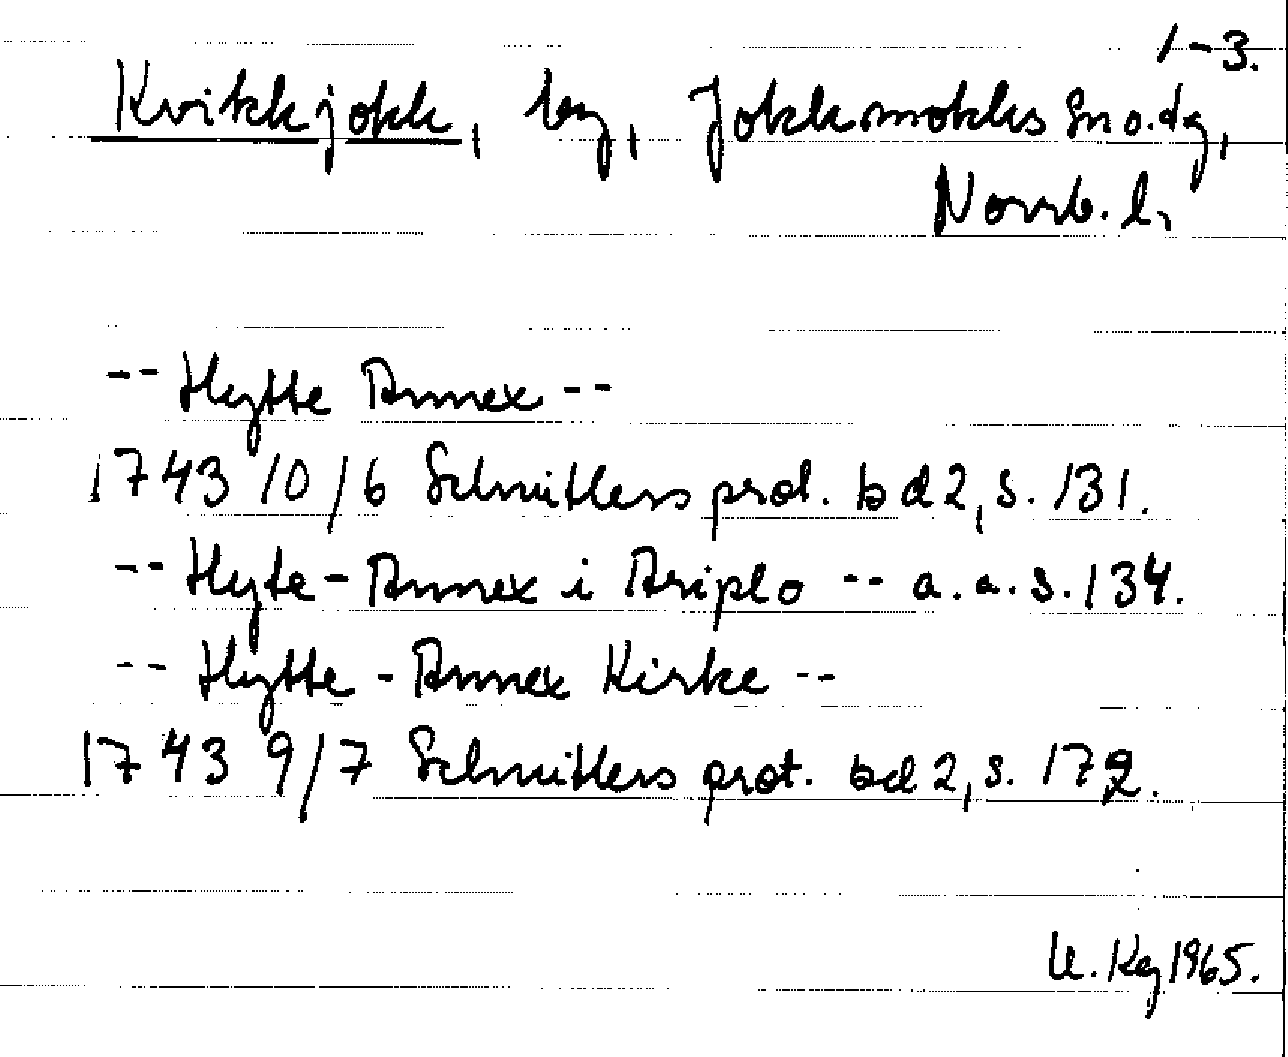 1-3.
Kvikkjokk, by, Jokkmokks sn o. tg,
Norrb. l.
-- Hytte Annex --
1743 10/6 Schnitlers prot. bd 2, s. 131.
-- Hyte-Annex i Ariplo -- a.a.s. 134.
-- Hytte-Annex Kirke --
1743 9/7 Schnitlers prot. bd 2, s. 172.
U. Kg 1965.